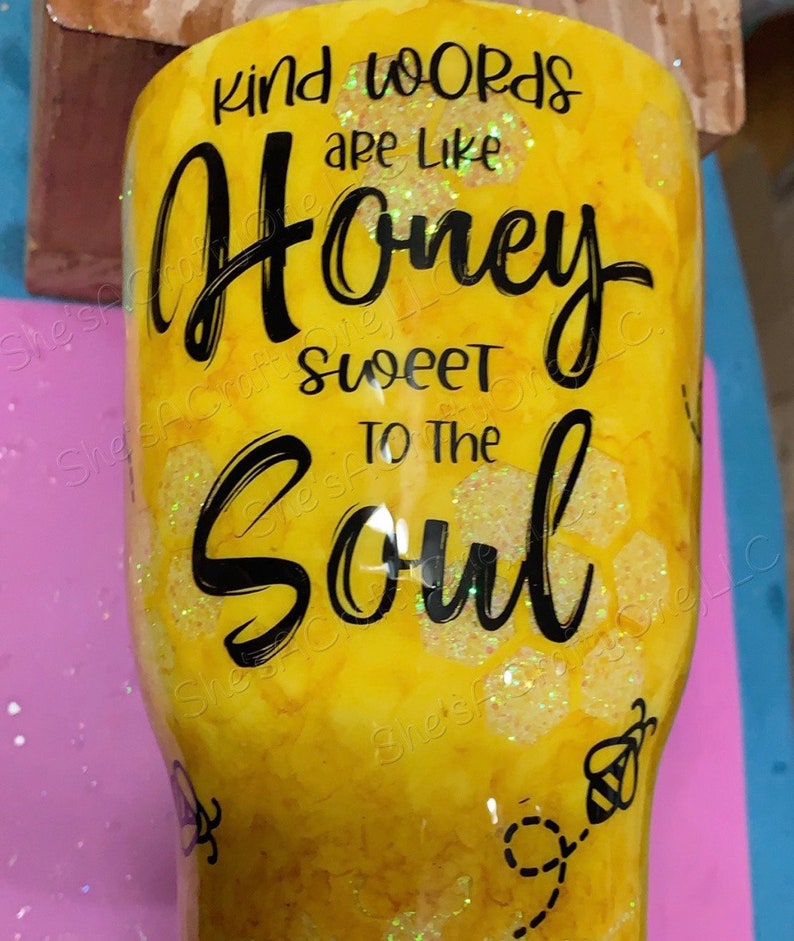 Kind WORDS
are Like
Honey
sweet
To The
Soul
She'sACraftyOne,LLC.
She'sACraftyOne,LLC.
She'sACraftyOne,LLC
She'sACraftyOne,LLC
She'sACraftyOne,LLC